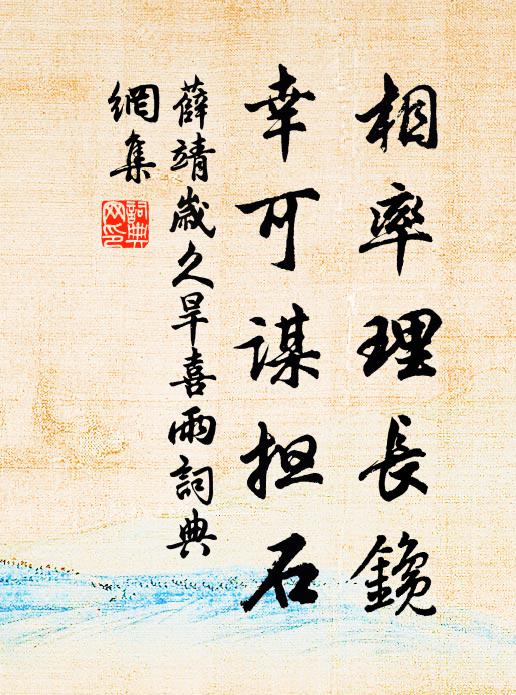 相率理長鑱
幸可謀担石
薛靖歲久旱喜雨詞典
網集
詞典網印